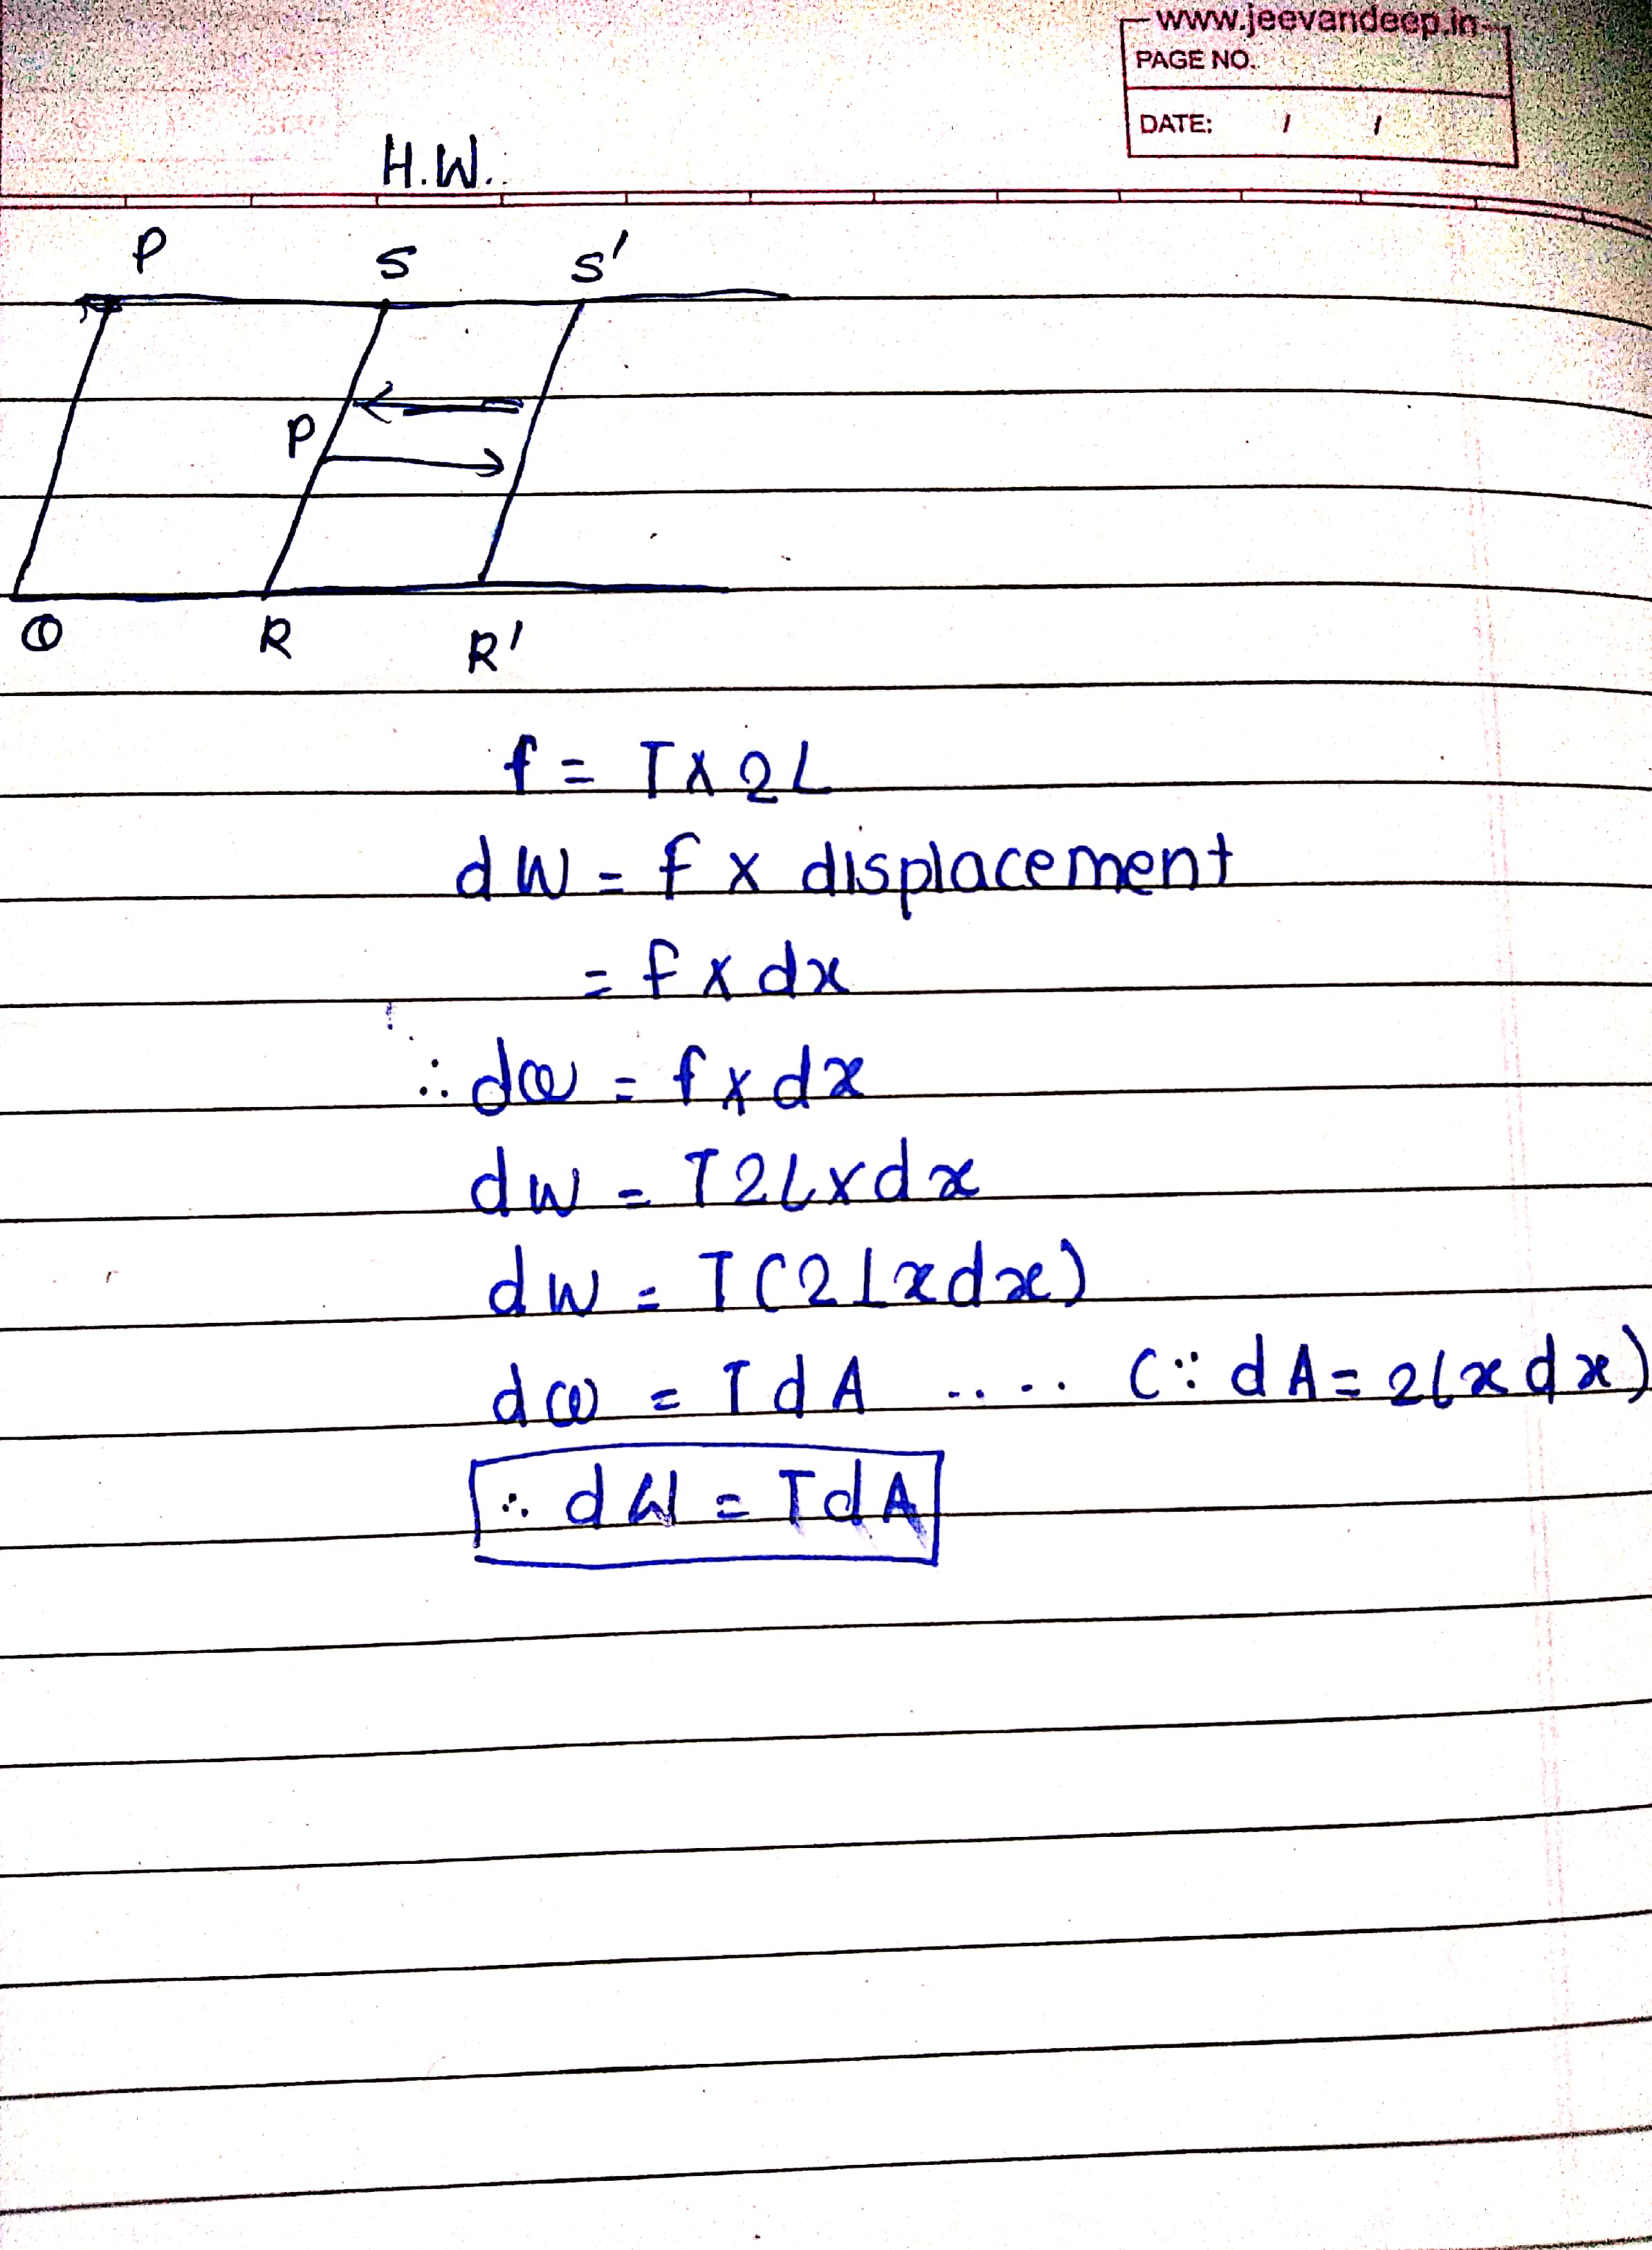 www.jeevandeep.in
PAGE NO.
DATE: / /
H.W.
P S S'
P
Q R R'
f = T × 2L
dW = f × displacement
= f × dx
∴ dω = f × dx
dw = T2L × dx
dw = T(2L x dx)
dω = TdA .... (∵ dA = 2L x dx)
∴ dW = TdA